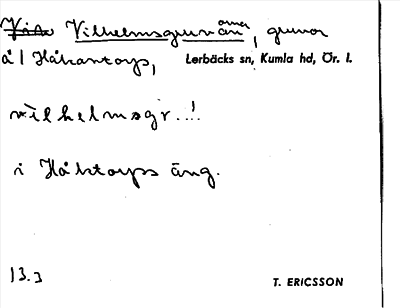 Vilhelmsgruvan, gruvor
å 1 Håkantorp, Lerbäcks sn, Kumla hd, Ör. l.
vilhelmsgr..!
i Håktorps äng.
13.3 T. ERICSSON